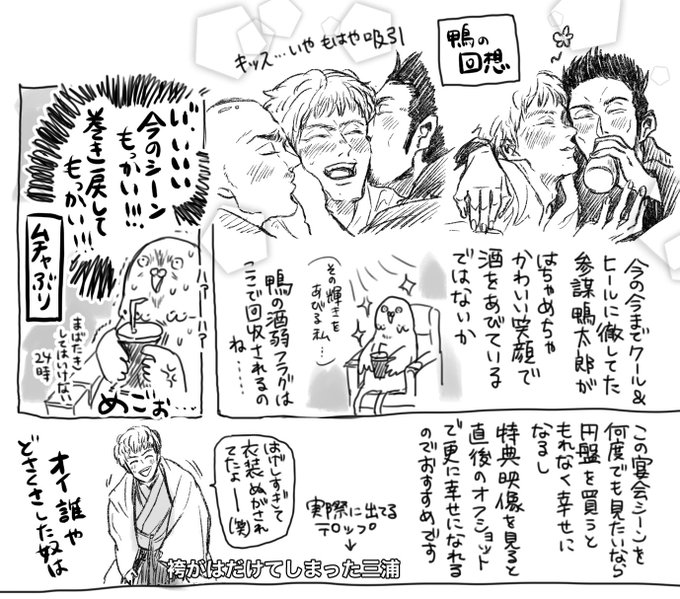 鴨の
回想
キッス…いや もはや吸引
今の今までクール&
ヒールに徹してた
参謀鴨太郎が
はちゃめちゃ
かわいい笑顔で
酒をあびている
ではないか
その輝きを
あびる私…
鴨の酒弱フラグは
ここで回収されるの
ね……
い、いいい
今のシーン
もっかい!!!
巻き戻して
もっかい!!!
ムチャぶり
ハァー ハァー
まばたき
してはいけない
24時
めごぉ…
この宴会シーンを
何度でも見たいなら
円盤を買うと
もれなく幸せに
なるし
特典映像を見ると
直後のオフショット
で更に幸せになれる
のでおすすめです
実際に出てる
テロップ
↓
はげしすぎて
衣装ぬがされ
てたよー(笑)
袴がはだけてしまった三浦
オイ誰や
どさくさした奴は